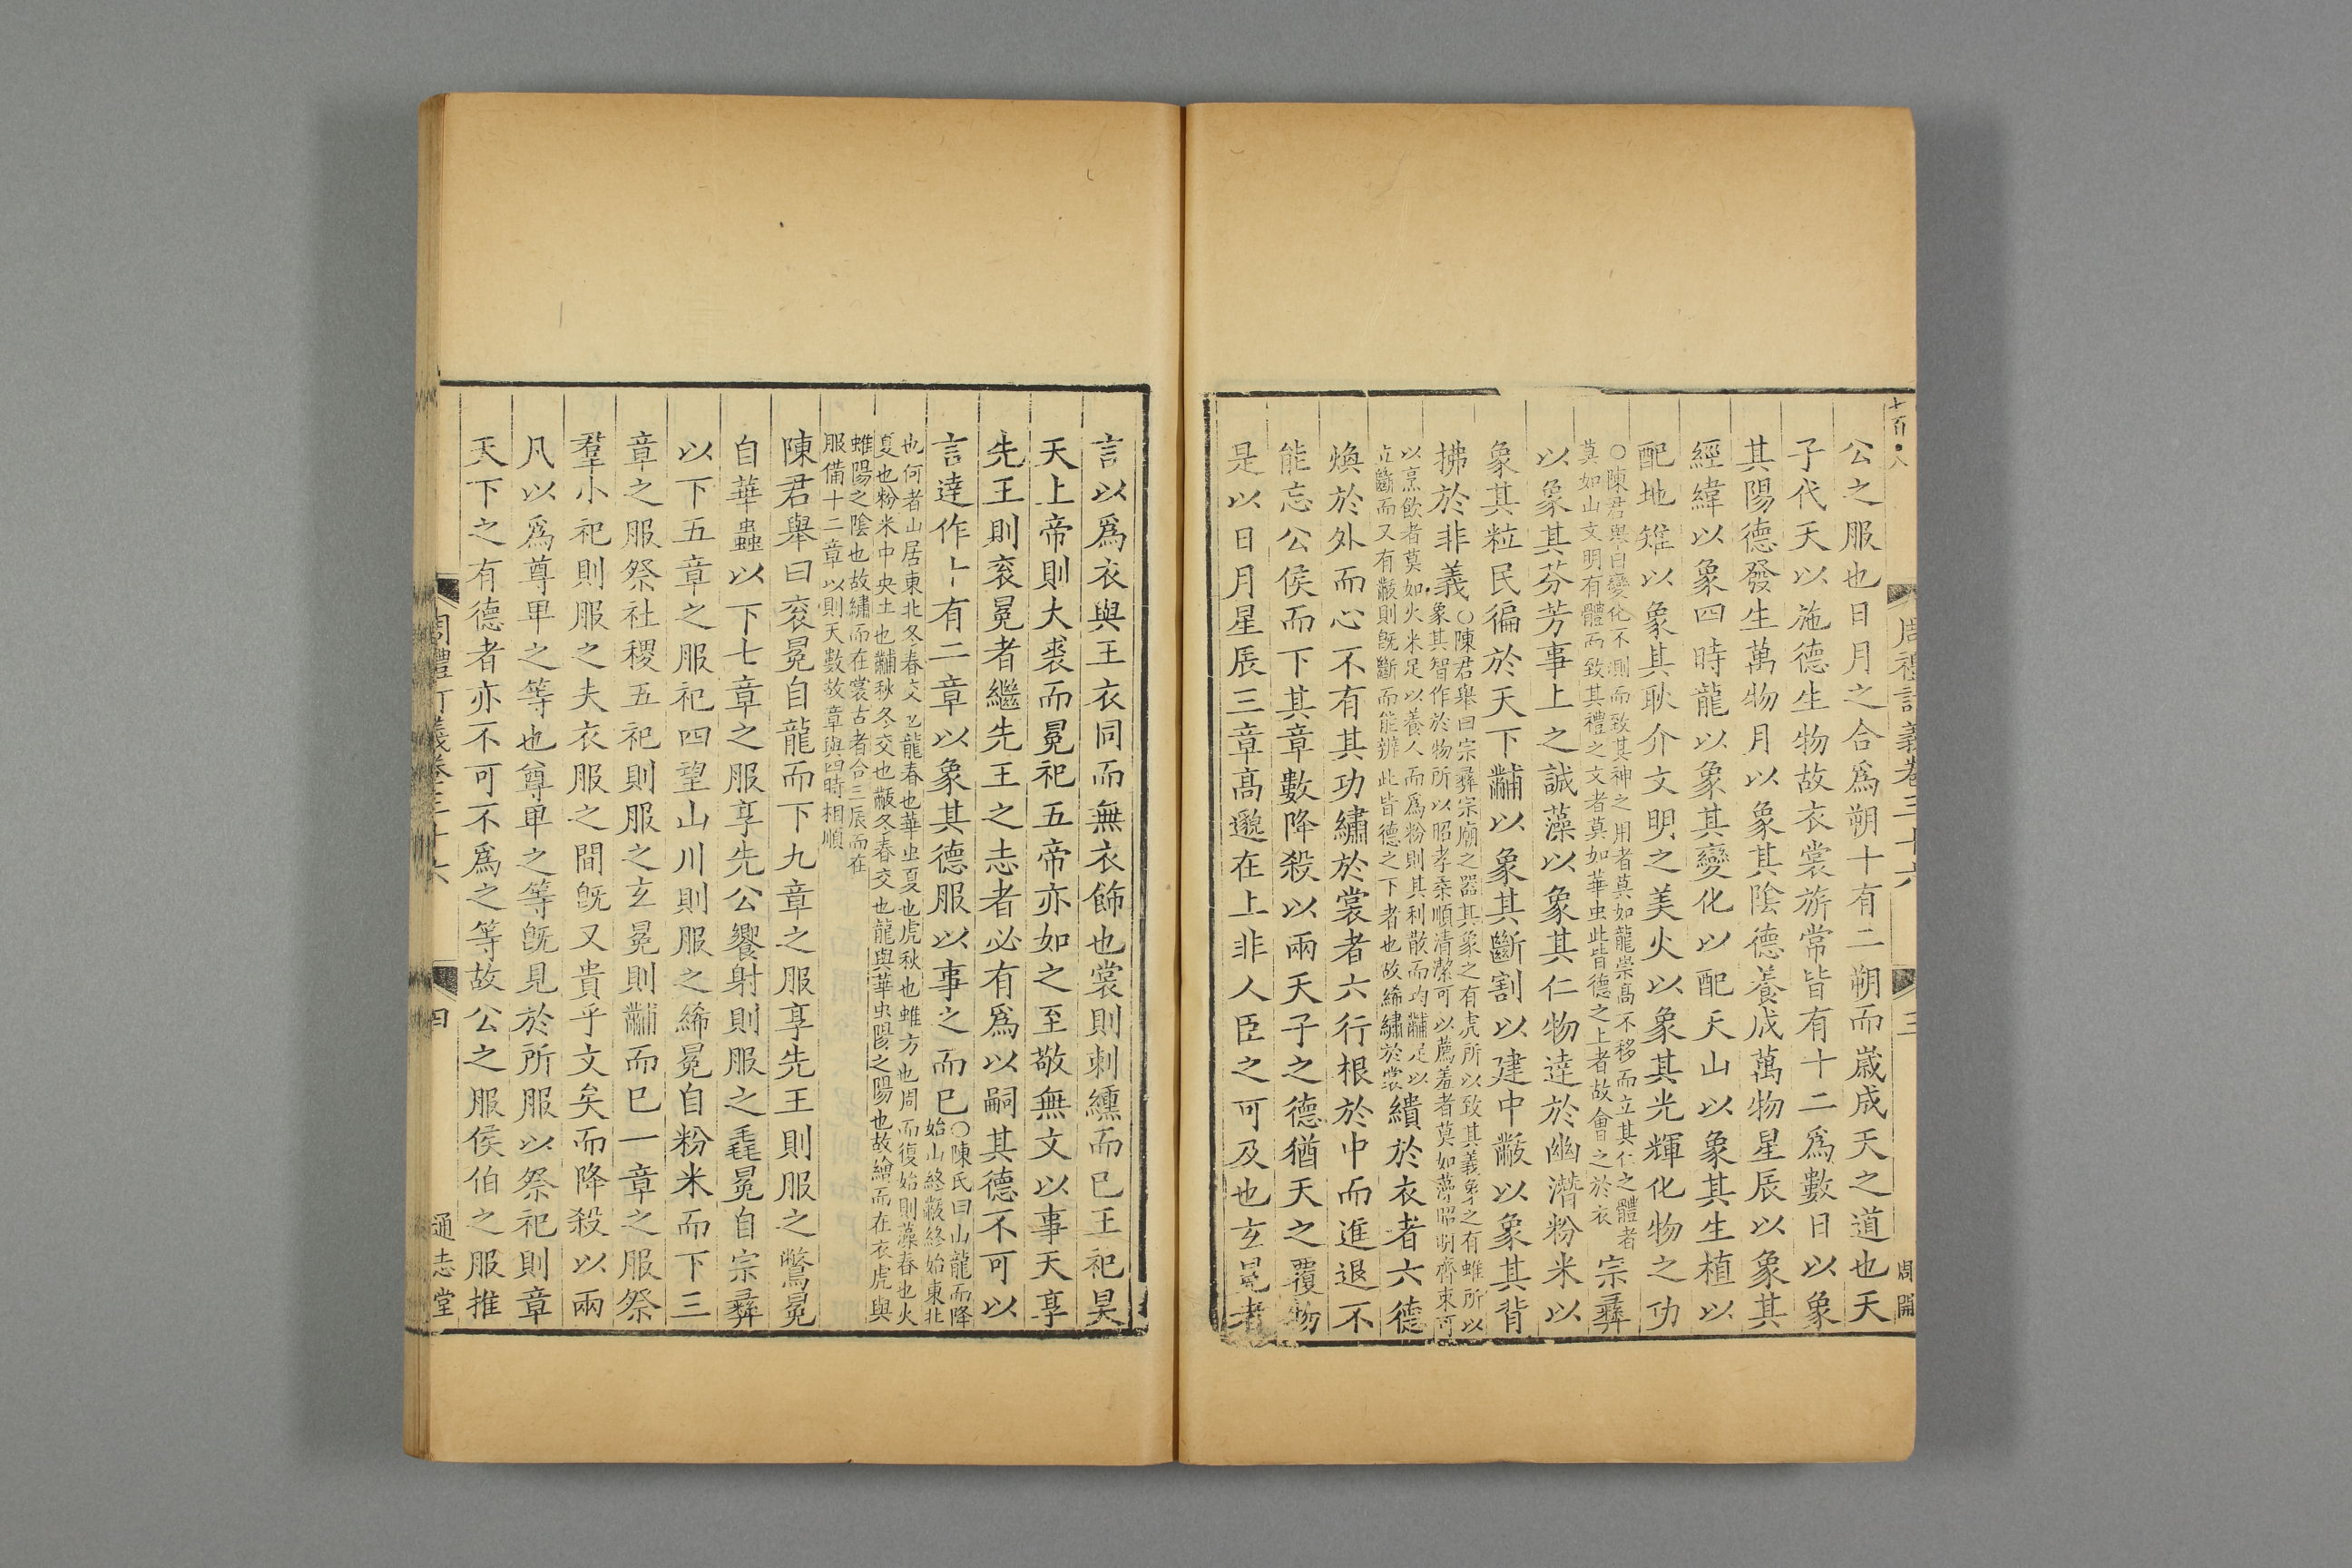 公之服也日月之合爲朔十有二朔而歲成天之道也天
子代天以施德生物故衣裳旂常皆有十二爲數日以象
其陽德發生萬物月以象其陰德養成萬物星辰以象其
經緯以象四時龍以象其變化以配天山以象其生植以
配地雉以象其耿介文明之美火以象其光輝化物之功
○陳君舉曰變化不測而致其神之用者莫如龍崇高不移而立其仁之體者
莫如山文明有體而致其禮之文者莫如華虫此皆德之上者故會之於衣
宗彝
以象其芬芳事上之誠藻以象其仁物達於幽潛粉米以
象其粒民徧於天下黼以象其斷割以建中黻以象其背
拂於非義
○陳君舉曰宗彝宗廟之器其象之有虎所以致其義象之有蜼所以
象其智作於物所以昭孝桑順清潔可以薦羞者莫如藻昭明齊束可
以烹飲者莫如火米足以養人而爲粉則其利散而均黼足以
立斷而又有黻則旣斷而能辨此皆德之下者也故絺繡於裳
繢於衣者六德
煥於外而心不有其功繡於裳者六行根於中而進退不
能忘公侯而下其章數降殺以兩天子之德猶天之覆物
是以日月星辰三章高邈在上非人臣之可及也玄冕者
周禮訂義卷三十六
三
言以爲衣與王衣同而無衣飾也裳則刺纁而已王祀昊
天上帝則大裘而冕祀五帝亦如之至敬無文以事天享
先王則衮冕者繼先王之志者必有爲以嗣其德不可以
言達作十有二章以象其德服以事之而已
○陳氏曰山龍而降
始山終黻終始東北
也何者山居東北冬春交也龍春也華虫夏也虎秋也蜼方也周而復始則藻春也火
夏也粉米中央土也黼秋冬交也黻冬春交也龍與華虫陽之陽也故繪而在衣虎與
蜼陽之陰也故繡而在裳古者合三辰而在
服備十二章以則天數故章與四時相順
陳君舉曰衮冕自龍而下九章之服享先王則服之鷩冕
自華蟲以下七章之服享先公饗射則服之毳冕自宗彝
以下五章之服祀四望山川則服之絺冕自粉米而下三
章之服祭社稷五祀則服之玄冕則黼而已一章之服祭
羣小祀則服之夫衣服之間旣又貴乎文矣而降殺以兩
凡以爲尊卑之等也尊卑之等旣見於所服以祭祀則章
天下之有德者亦不可不爲之等故公之服侯伯之服推
周禮訂義卷三十六
四
通志堂